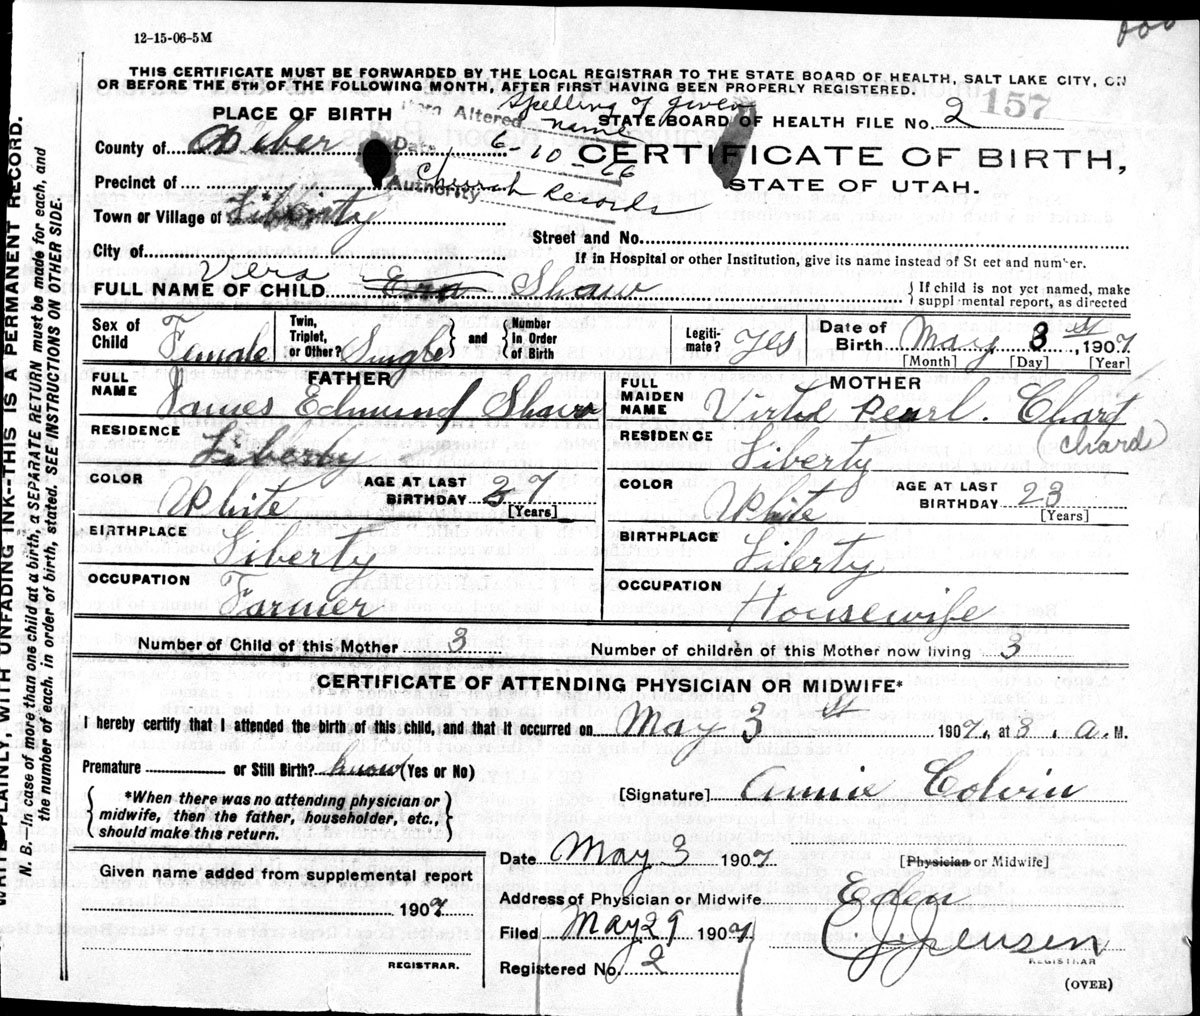 000
12-15-06-5M
THIS CERTIFICATE MUST BE FORWARDED BY THE LOCAL REGISTRAR TO THE STATE BOARD OF HEALTH, SALT LAKE CITY, ON
OR BEFORE THE 5TH OF THE FOLLOWING MONTH, AFTER FIRST HAVING BEEN PROPERLY REGISTERED.
PLACE OF BIRTH
Altered Spelling of given name
STATE BOARD OF HEALTH FILE No. 2
157
County of Weber
Date 6-10-66
CERTIFICATE OF BIRTH,
Precinct of
Authority Church Records
STATE OF UTAH.
Town or Village of Liberty
Street and No.
City of
If in Hospital or other Institution, give its name instead of St eet and number.
Vera
FULL NAME OF CHILD Ena Shaw
{ If child is not yet named, make supplemental report, as directed
Sex of Child Female
Twin, Triplet, or Other? Single } and { Number in Order of Birth
Legitimate? Yes
Date of Birth May 3 , 1907
[Month] [Day] [Year]
FULL NAME
FATHER
James Edmund Shaw
FULL MAIDEN NAME
MOTHER
Virtod Pearl. Chart
(Chard)
RESIDENCE Liberty
RESIDENCE Liberty
COLOR White
AGE AT LAST BIRTHDAY 27 [Years]
COLOR White
AGE AT LAST BIRTHDAY 23 [Years]
BIRTHPLACE Liberty
BIRTHPLACE Liberty
OCCUPATION Farmer
OCCUPATION Housewife
Number of Child of this Mother 3
Number of children of this Mother now living 3
CERTIFICATE OF ATTENDING PHYSICIAN OR MIDWIFE*
I hereby certify that I attended the birth of this child, and that it occurred on May 3 st 1907, at 3. a. M.
Premature or Still Birth? know (Yes or No)
{ *When there was no attending physician or midwife, then the father, householder, etc., should make this return. }
[Signature] Annie Colvin
Date May 3 1907
[Physician or Midwife]
Given name added from supplemental report
1907
REGISTRAR.
Address of Physician or Midwife Eden
Filed May 29 1907
C J Jensen
REGISTRAR
Registered No. 2
(OVER)
WRITE PLAINLY, WITH UNFADING INK--THIS IS A PERMANENT RECORD.
N. B. In case of more than one child at a birth, a SEPARATE RETURN must be made for each, and
the number of each. in order of birth, stated. SEE INSTRUCTIONS ON OTHER SIDE.